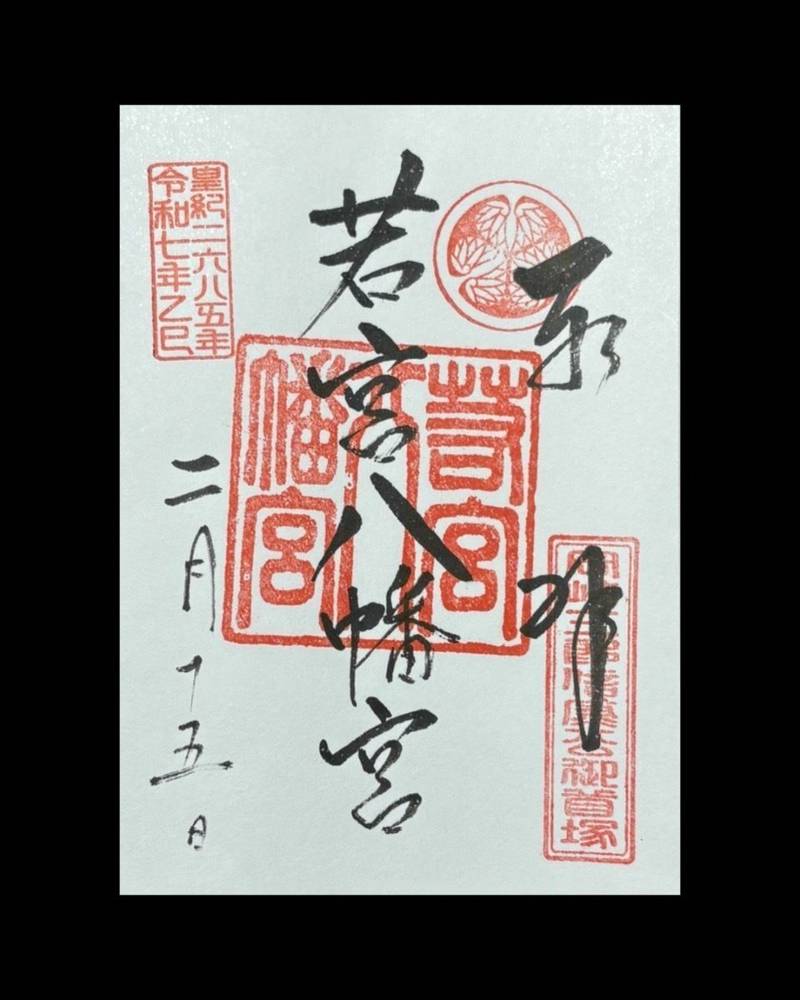 奉拝
岡崎三郎信康公御首塚
若宮八幡宮
若宮八幡宮
皇紀二六八五年
令和七年乙巳
二月十五日